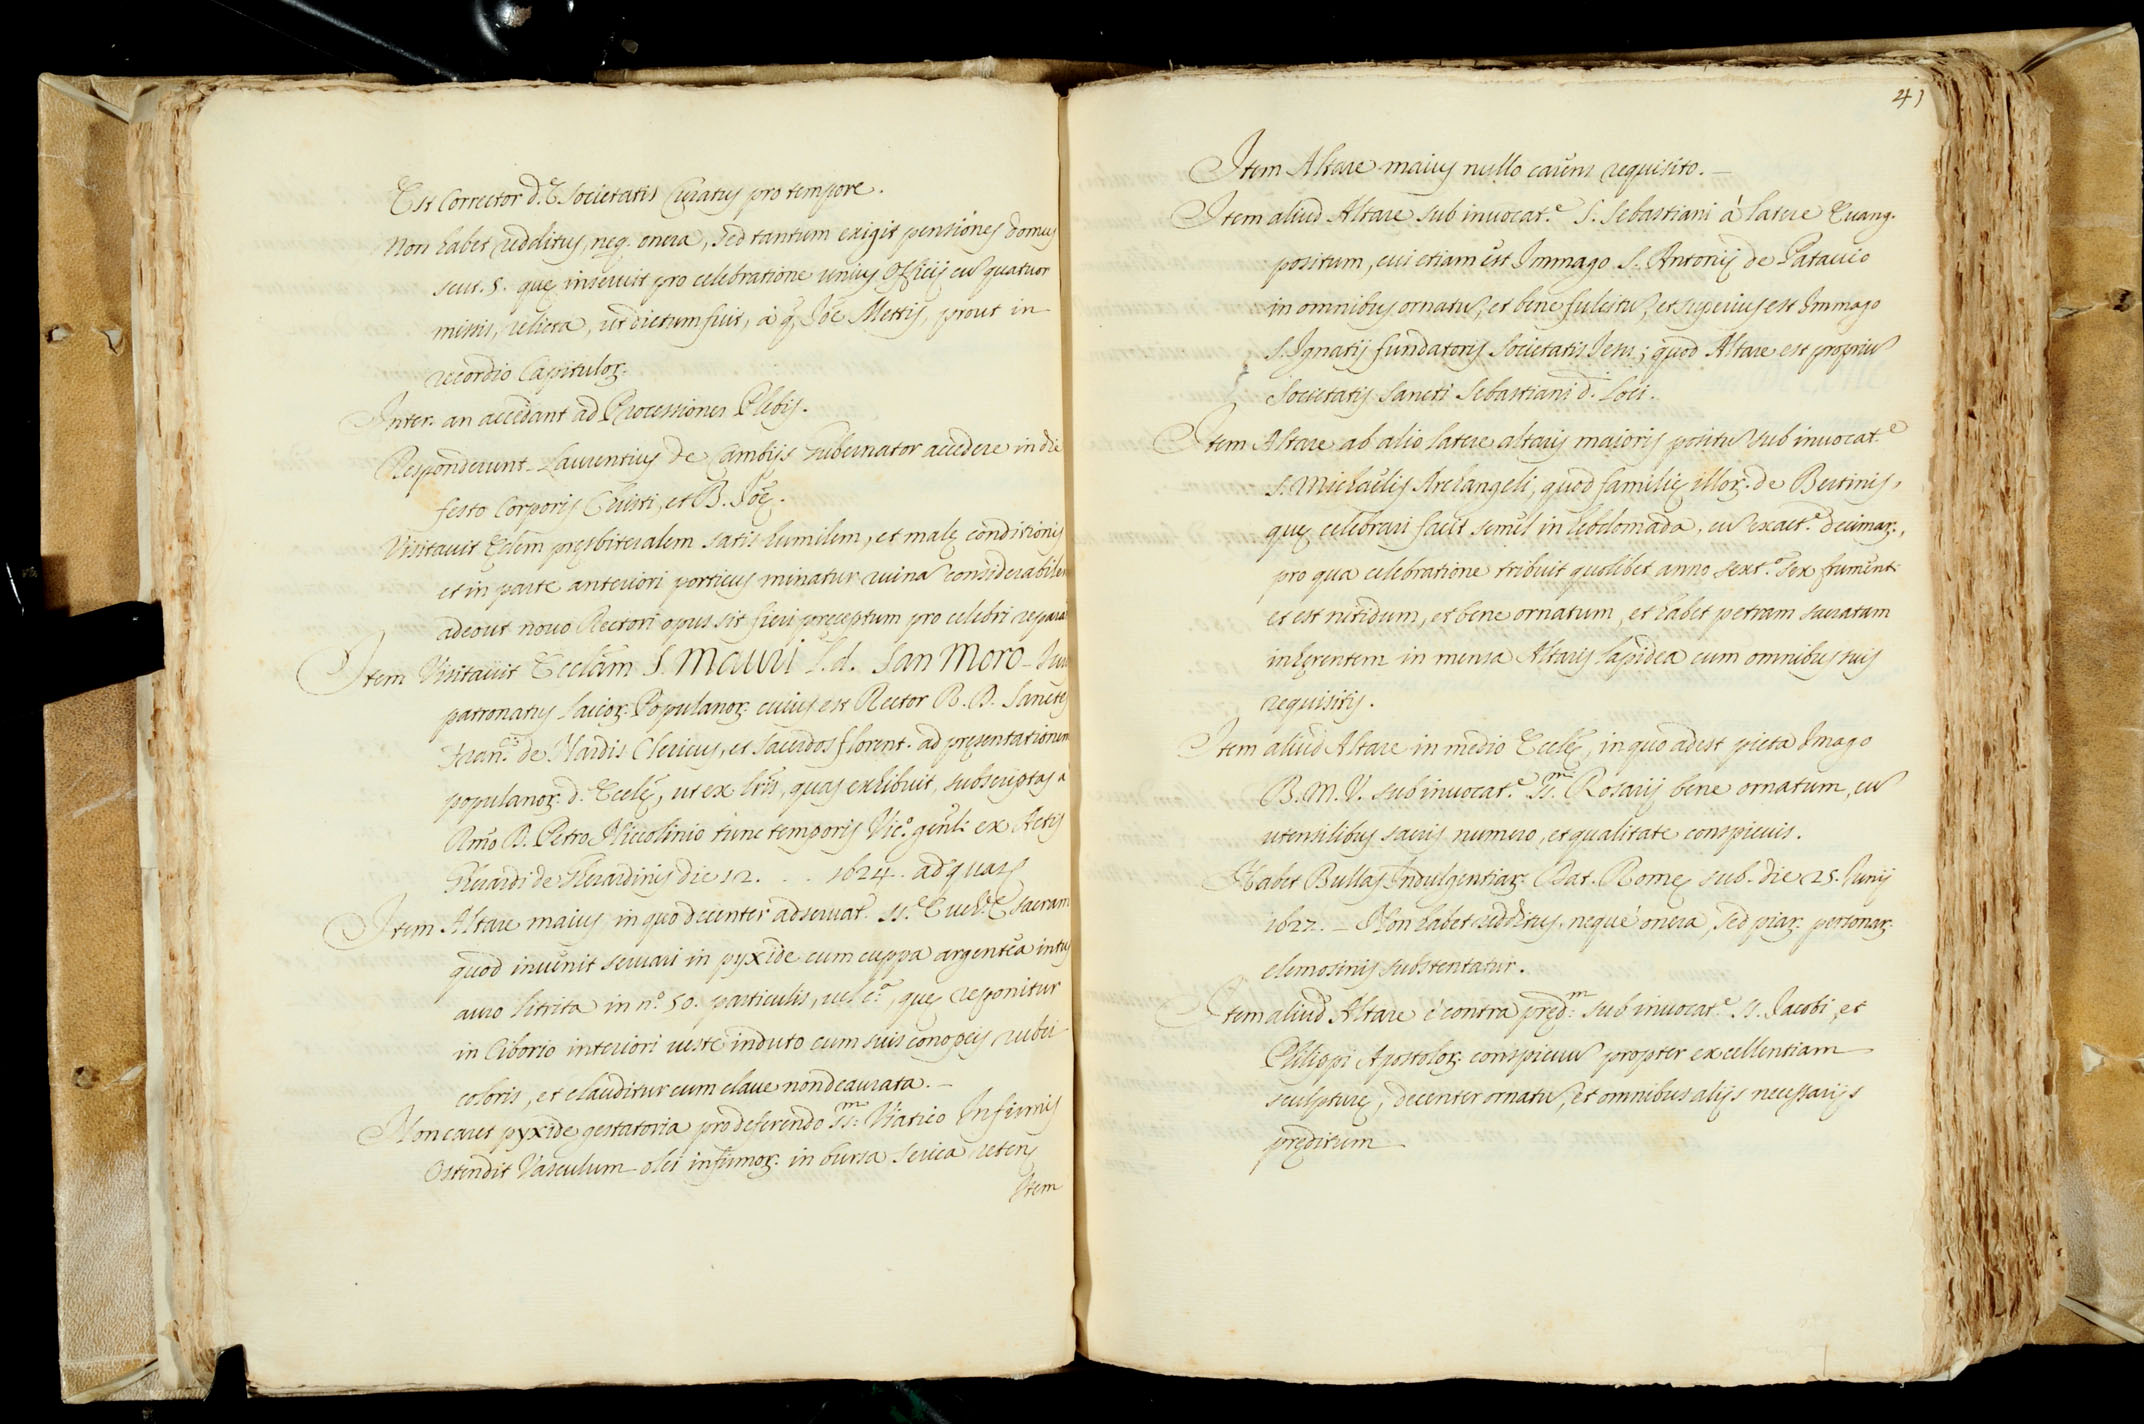 Est Corrector d.ę Societatis Curatus pro tempore.
Non habet redditus, neq. onera, sed tantum exigit pensiones domus
scut. 5. quę inservit pro celebratione unius Officij cu quatuor
missis, relicta, ut dictum fuit, à q. Joe Mettis, prout in
recordio Capitulor.
Inter. an accedant ad Processiones Plebis.
Responderunt Laurentius de Cambijs Gubernator accedere in die
festo Corporis Christi, et B. Joę.
Visitavit Edem pręsbiteralem satis humilem, et malę conditionis
et in parte anteriori porticus minatur ruina considerabilem
adeout novo Rectori opus sit fieri preceptum pro celebri repara
Item Visitavit Ecclam S. Mauri s.d. San Moro Jur
patronatus laicor. Popularior. cuius est Rector R. D. Sanctes
Fran.s de Nardis Clericus, et sacerdos florent. ad pręsentationem
populanor. d. Ecclę, ut ex lris, quas exhibuit, subscriptas à
Rmo D. Petro Niccolinio tunc temporis Vic.o genli ex Actis
Gherardi de Gherardinis die 12. . . 1624. ad quas
Item Altare maius, in quo decenter adservat. SS.ę Euch.ę Sacram
quod invenit servari in pyxide cum cuppa argentea intus
auro litrita in n.o 50. particulis, vel c.a, quę reponitur
in Ciborio interiori veste induto cum suis conopeis rubei
coloris, et clauditur cum clave non deaurata.
Non caret pyxide gestatoria pro deferendo SS.m Viatico Infirmis
Ostendit Vasculum olei infirmor. in bursa serica retens
Item
41
Item Altare maius nullo carens requisito.
Item aliud Altare sub invocat.e S. Sebastiani à latere Evang.
positum, cui etiam est Immago S. Antonij de Patavio
in omnibus ornatu, et bene fulcitu, et superius est Immago
S. Ignatij fundatoris Societatis Jesu; quod Altare est propriu
Societatis Sancti Sebastiani d. loci.
Item Altare ab alio latere altaris maioris positu sub invocat.e
S. Michaelis Archangeli, quod familię illor. de Bertinis,
quę celebrari facit semel in hebdomada, cu exact.e decimar.,
pro qua celebratione tribuit quolibet anno sext.a sex frument.
et est nitidum, et bene ornatum, et habet petram sacratam
inherentem in mensa Altaris lapidea cum omnibus suis
requisitis.
Item aliud Altare in medio Ecclę, in quo adest picta Imago
B. M. V. sub invocat.e SS.m Rosarij bene ornatum, cu
utensilibus sacris numero, et qualitate conspicuis.
Habet Bullas Indulgentiar. Dat. Romę sub die 25. Junij
1627. Non habet redditus, neque onera, sed piar. personar.
elemosinis substentatur.
Item aliud Altare è contra pręd.m sub invocat.e SS. Jacobi, et
Philippi Apostolor. conspicuu propter excellentiam
sculpturę, decenter ornatu, et omnibus alijs necessarijs
pręditum